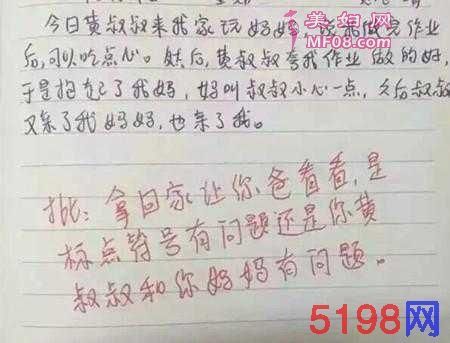 美妇网
MF08.com
今日黄叔叔来我家玩妈妈 说我做完作业
后,可以吃点心。然后,黄叔叔夸我作业做的好,
于是抱起了我妈,妈叫叔叔小心一点,之后叔叔
又亲了我妈妈,也亲了我。
批:拿回家让你爸看看,是
标点符号有问题还是你黄
叔叔和你妈妈有问题。
5198网